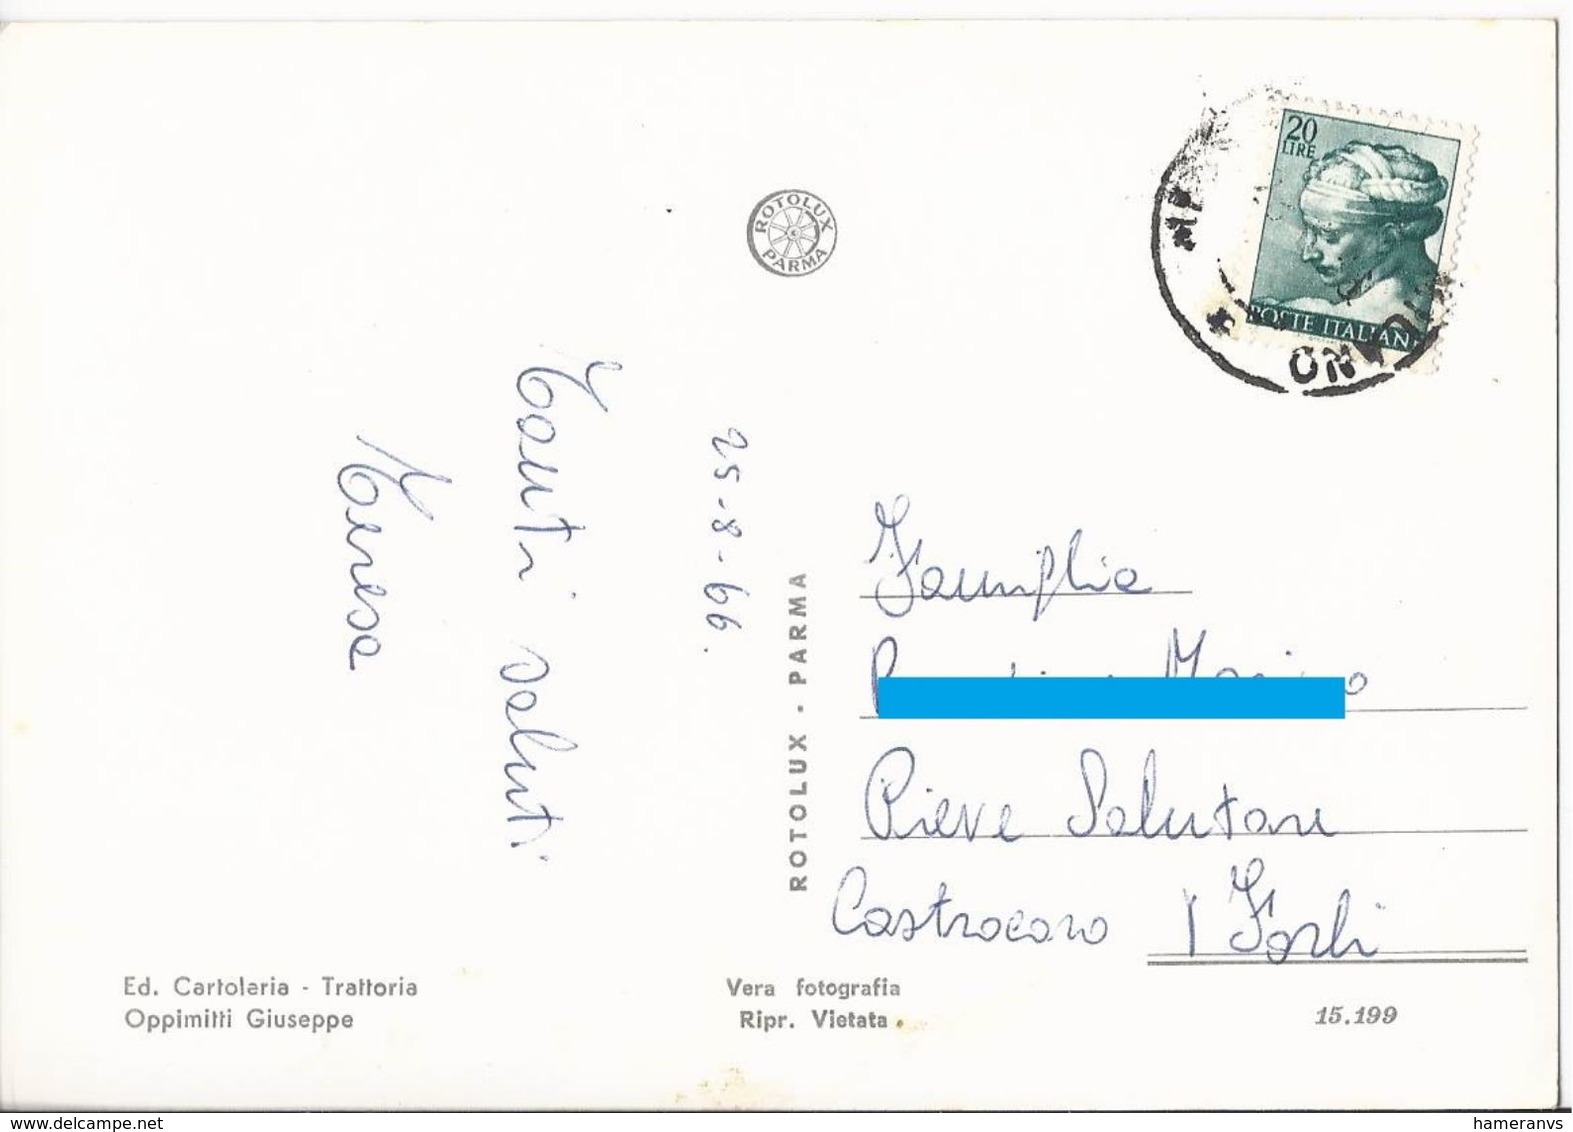 20
LIRE
POSTE ITALIANE
ROTOLUX
PARMA
25-8-66.
Tanti saluti
Teresa
ROTOLUX - PARMA
Famiglia
Pieve Salutare
Castrocaro (Forlì
Ed. Cartoleria - Trattoria
Oppimitti Giuseppe
Vera fotografia
Ripr. Vietata
15.199
www.delcampe.net
hameranvs